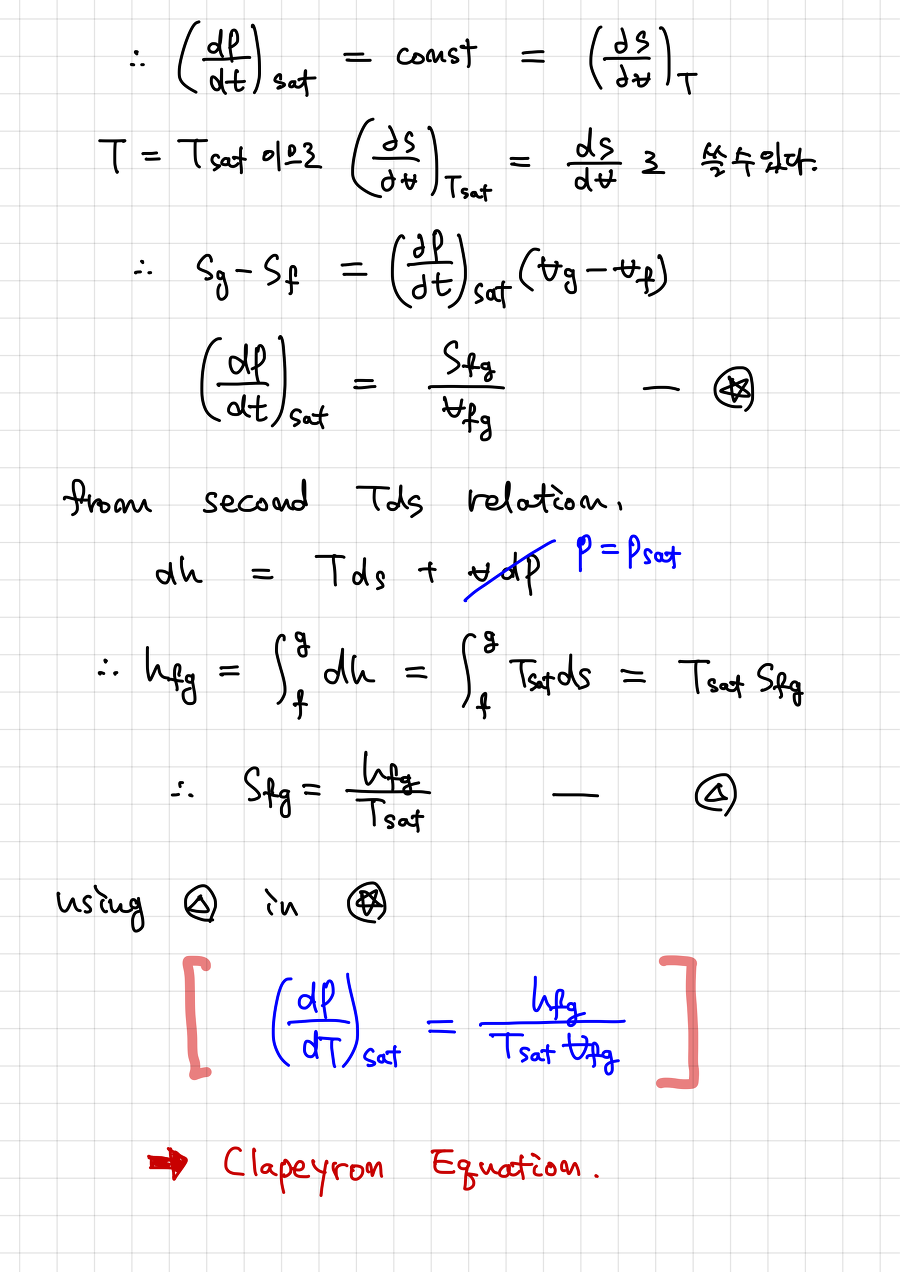 ∴ (dP/dt)sat = const = (∂s/∂v)T
T = Tsat 이므로 (∂s/∂v)Tsat = ds/dv 로 쓸 수 있다.
∴ Sg - Sf = (∂P/∂t)sat (vg - vf)
(dP/dt)sat = Sfg/vfg — ☆
from second Tds relation.
dh = Tds + vdp P = Psat
∴ hfg = ∫f^g dh = ∫f^g Tsat ds = Tsat Sfg
∴ Sfg = hfg/Tsat — △
using △ in ☆
[ (dP/dT)sat = hfg/(Tsat vfg) ]
➡ Clapeyron Equation.